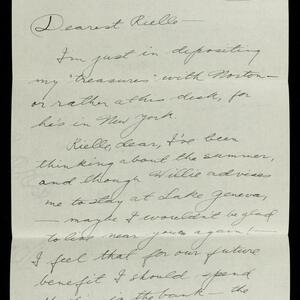 Dearest Rielle—
I'm just in depositing
my "treasures" with Norton—
or rather at his desk, for
he's in New York
Rielle, dear, I've been
thinking about the summer,
and though Willie advises
me to stay at Lake Geneva,
— maybe I wouldn't be glad
to live near you again! —
I feel that for our future
benefit I should spend
the